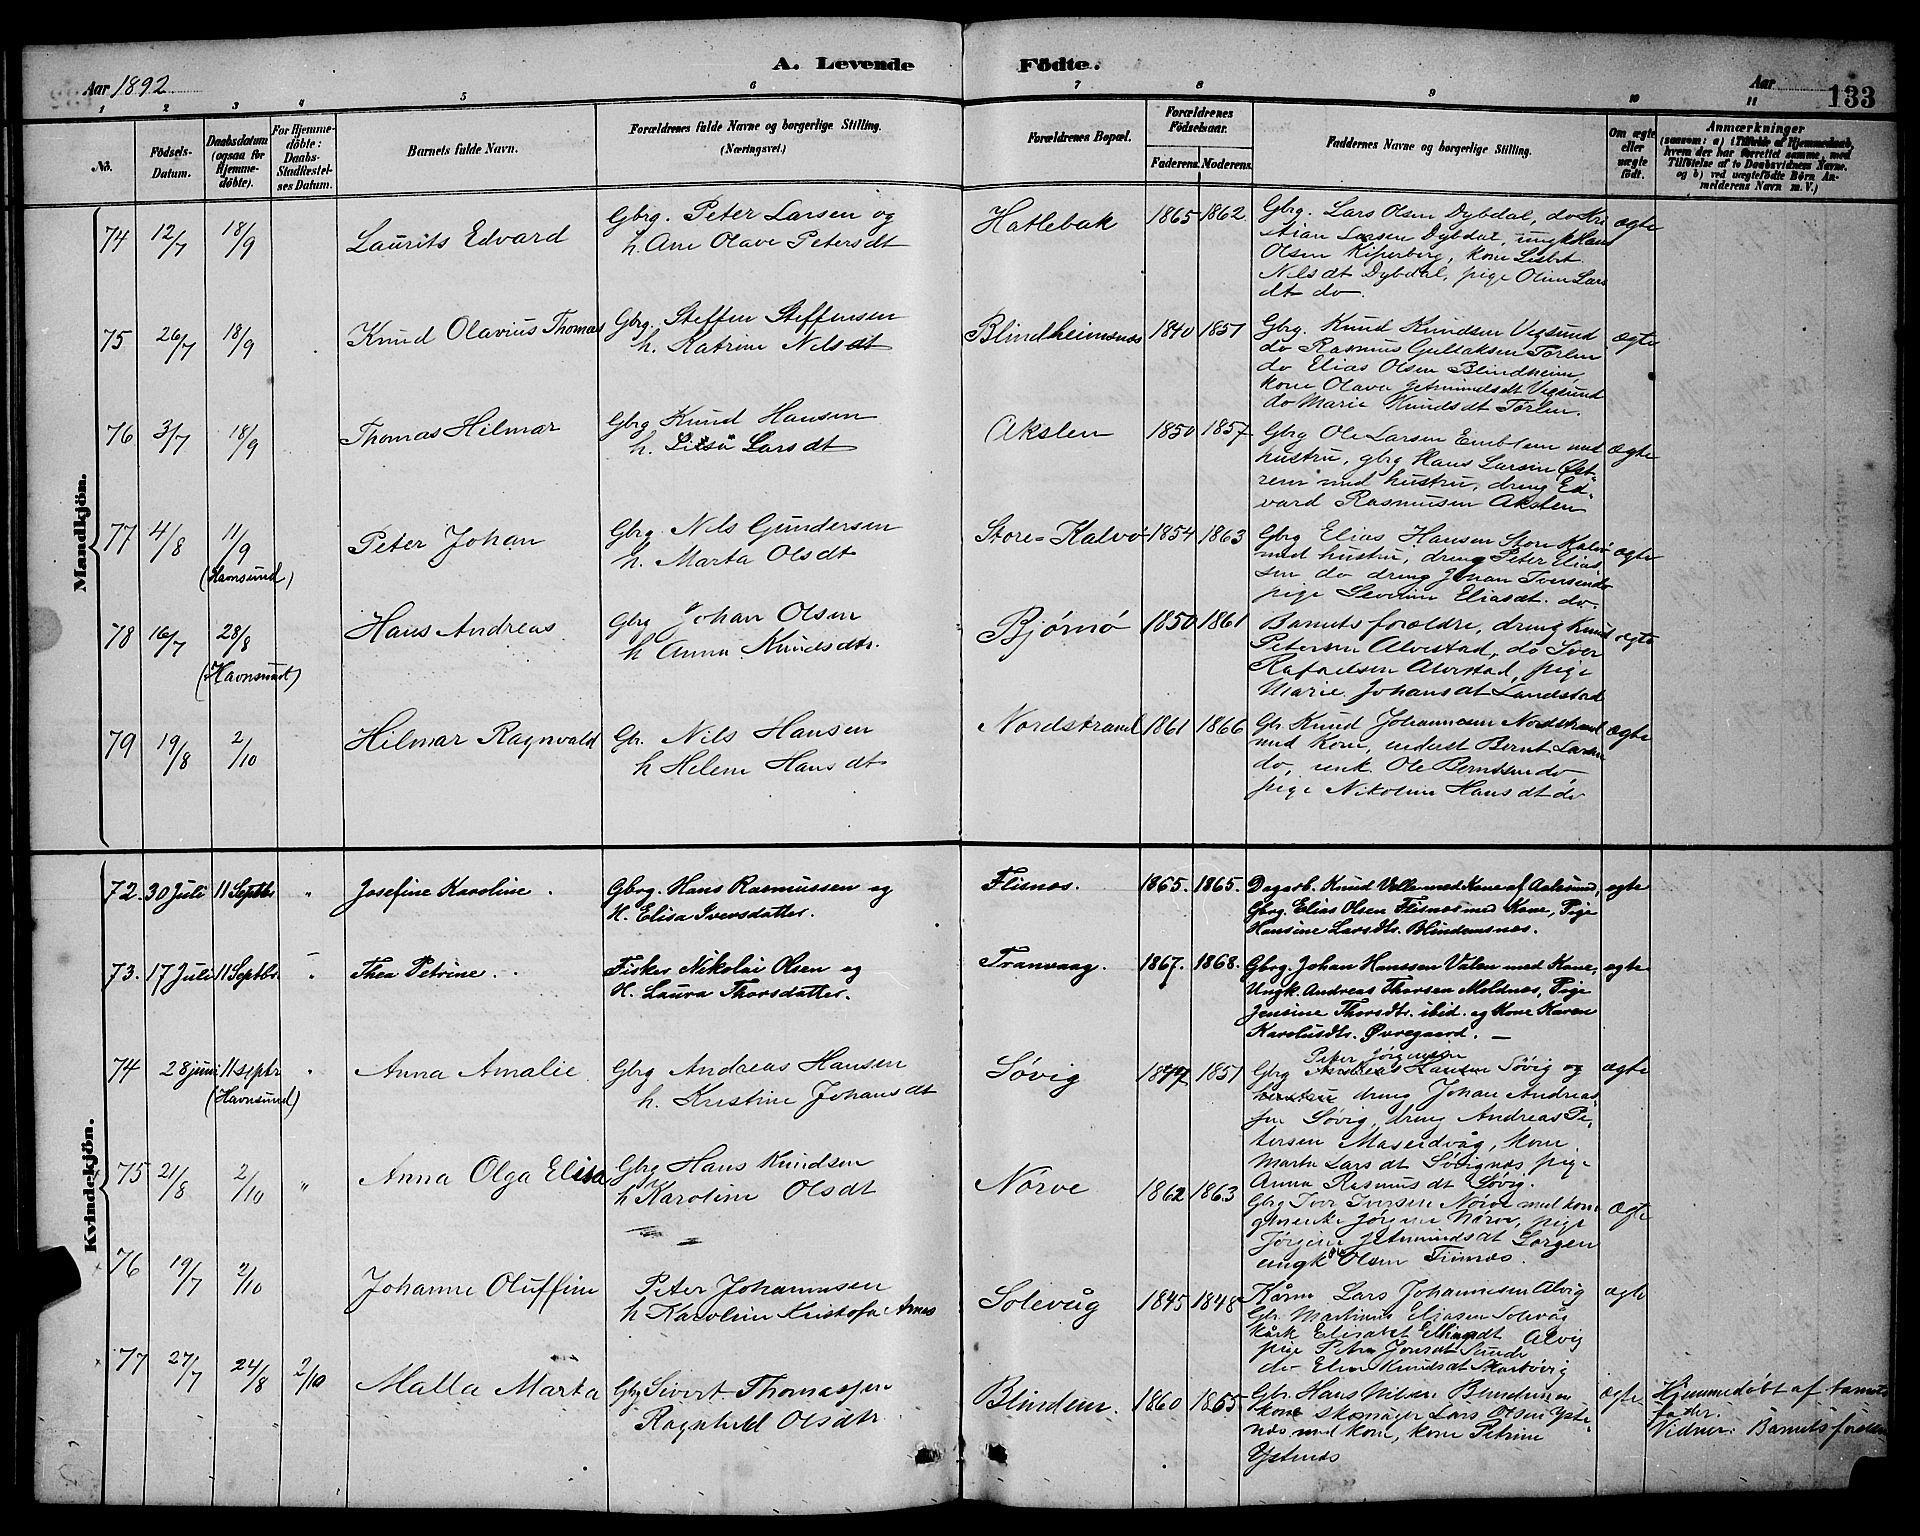 Aar 1892
A. Levende Födte.
Aar
133
1 2 3 4 5 6 7 8 9 10 11
No.
Födsels-Datum.
Daabsdatum (ogsaa for Hjemme-döbte).
For Hjemme-döbte: Daabs-Stadfæstel-ses Datum.
Barnets fulde Navn.
Forældrenes fulde Navne og borgerlige Stilling.
(Næringsvei.)
Forældrenes Bopæl.
Forældrenes Födselsaar.
Faderens. Moderens.
Faddernes Navne og borgerlige Stilling.
Om ægte eller uægte födt.
Anmærkninger
(saasom: a) i Tilfælde af Hjemmedaab, hvem der har forrettet samme, med Tilföielse af to Daabsvidners Navne, og b) ved uægtefödte Börn An-melderens Navn m. V.)
Mandkjön.
74 12/7 18/9 Laurits Edvard
Gbrg. Peter Larsen og
h. Ane Olave Petersdt
Hatlebak 1865 1862
Gbrg. Lars Olsen Dybdal, do Kri
stian Larsen Dybdal, ungk Hans
Olsen Kiperberg, kone Lisbet
Nilsdt Dybdal, pige Oline Lars
dt do.
ægte
75 26/7 18/9 Knud Olavius Thomas
Gbrg. Steffen Steffensen
h. Katrine Nilsdt
Blindheimsnes 1840 1851
Gbrg. Knud Knudsen Vegsund
do Rasmus Guttaksen Tørlen
do Elias Olsen Blindheim,
kone Olava Jetmundsdt Vegsund
do Marie Knudsdt Tørlen.
ægte
76 3/7 18/9 Thomas Hilmar
Gbrg Knud Hansen
h. Larsdt
Akslen 1850 1857
Gbrg Ole Larsen Emblem med
hustru, gbrg Hans Larsen Øst
rem med hustru, dreng Ed-
vard Rasmusen Akslen
ægte
77 4/8 11/9 (Havnsund) Peter Johan
Gbrg. Nils Gundersen
h. Marta Olsdt
Store-Kalvø 1854 1863
Gbrg Elias Hansen Store Kalvø
med hustru, dreng Peter Elias
sen do dreng Johan Iversen do
pige Severine Eliasdt. do.
ægte
78 16/7 28/8 (Havnsund) Hans Andreas
Gbrg Johan Olsen
h Anna Knudsdtr.
Bjørnø 1850 1861
Barnets forældre, dreng Knud
Petersen Alvestad, do Iver
Rafaelsen Alvestad, pige
Marie Johansdt Landestad
ægte
79 19/8 2/10 Hilmar Ragnvald
Gbr. Nils Hansen
h Helene Hansdt
Nordstrand 1861 1866
Gbr. Knud Johannesen Nordstrand
med Kone, Bernt Larsen
do, Ole Berntsen do
pige Nikoline Hansdt do
ægte
Kvindekjön.
72. 30 Juli 11 Septbr " Josefine Karoline.
Gbrg. Hans Rasmussen og
H. Elisa Iversdatter.
Flisnes. 1865. 1865.
Dagarb. Knud Valle med Kone af Aalesund,
Gbrg. Elias Olsen Flisnes med Kone, Pige
Hansine Larsdtr. Blindemsnes.
egte
73. 17 Juli 11 Septbr " Thea Petrine.
Fisker Nikolai Olsen og
H. Laura Thorsdatter.
Tranvaag. 1867. 1868.
Gbrg. Johan Hanssen Valen med Kone,
Ungk. Andreas Thorsen Moldnes, Pige
Jensine Thorsdtr. ibid. og Kone Karen
Karolusdtr. Øvregaard. —
egte
74 28 juni 11 septbr (Havnsund) " Anna Amalie
Gbrg Andreas Hansen
h. Kristine Johansdt
Søvig 1847 1851
Peter Jørgensen
Gbrg Andreas Hansen Søvig og
hustru dreng Johan Andreas-
sen Søvig, dreng Andreas Pe-
tersen Maseidvåg, kone
Marta Larsdt Søvignes, pige
Anna Rasmusdt Søvig.
ægte
75 21/8 2/10 " Anna Olga Elisa
Gbrg Hans Knudsen
h Karoline Olsdt
Nørve 1862 1863
Gbrg Iver Iversen Nørve med kone
Jørgine Nørve, pige
Jørgine Jetmundsdt Gorgen
ungk Ole Olsen
ægte
76 19/7 2/10 Johanne Oluffine
Peter Johannesen
h Karoline Kristofa Arnes
Solevåg 1845 1848
Lars Johannesen Alvig
Gbr. Martinus Eliasen Solevåg
Elisabet Alvig
pige Petra Jonsdt Sunde
do Eline Knudsdt
ægte
77 27/7 24/8 2/10 Malla Marta
Gbrg Sivert Thomassen
Ragnhild Olsdtr.
Blindem. 1860 1865
Gbr. Hans Nilsen Blindem
kone skomager Lars Olsen Yste-
nes med kone, kone Petrine
Ystenes
ægte
Hjemmedøbt af barnets
fader.
Vidner: Barnets forældre